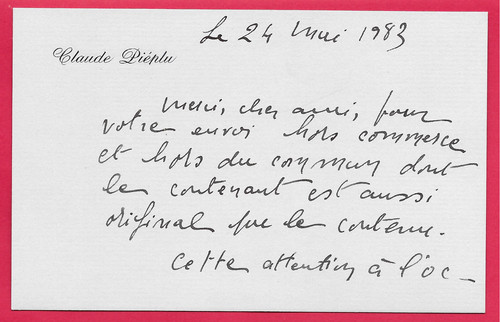 Le 24 Mai 1983
Claude Piéplu
Merci, cher ami, pour
votre envoi hors commerce
et hors du commun dont
le contenant est aussi
original que le contenu.
Cette attention à l'oc-